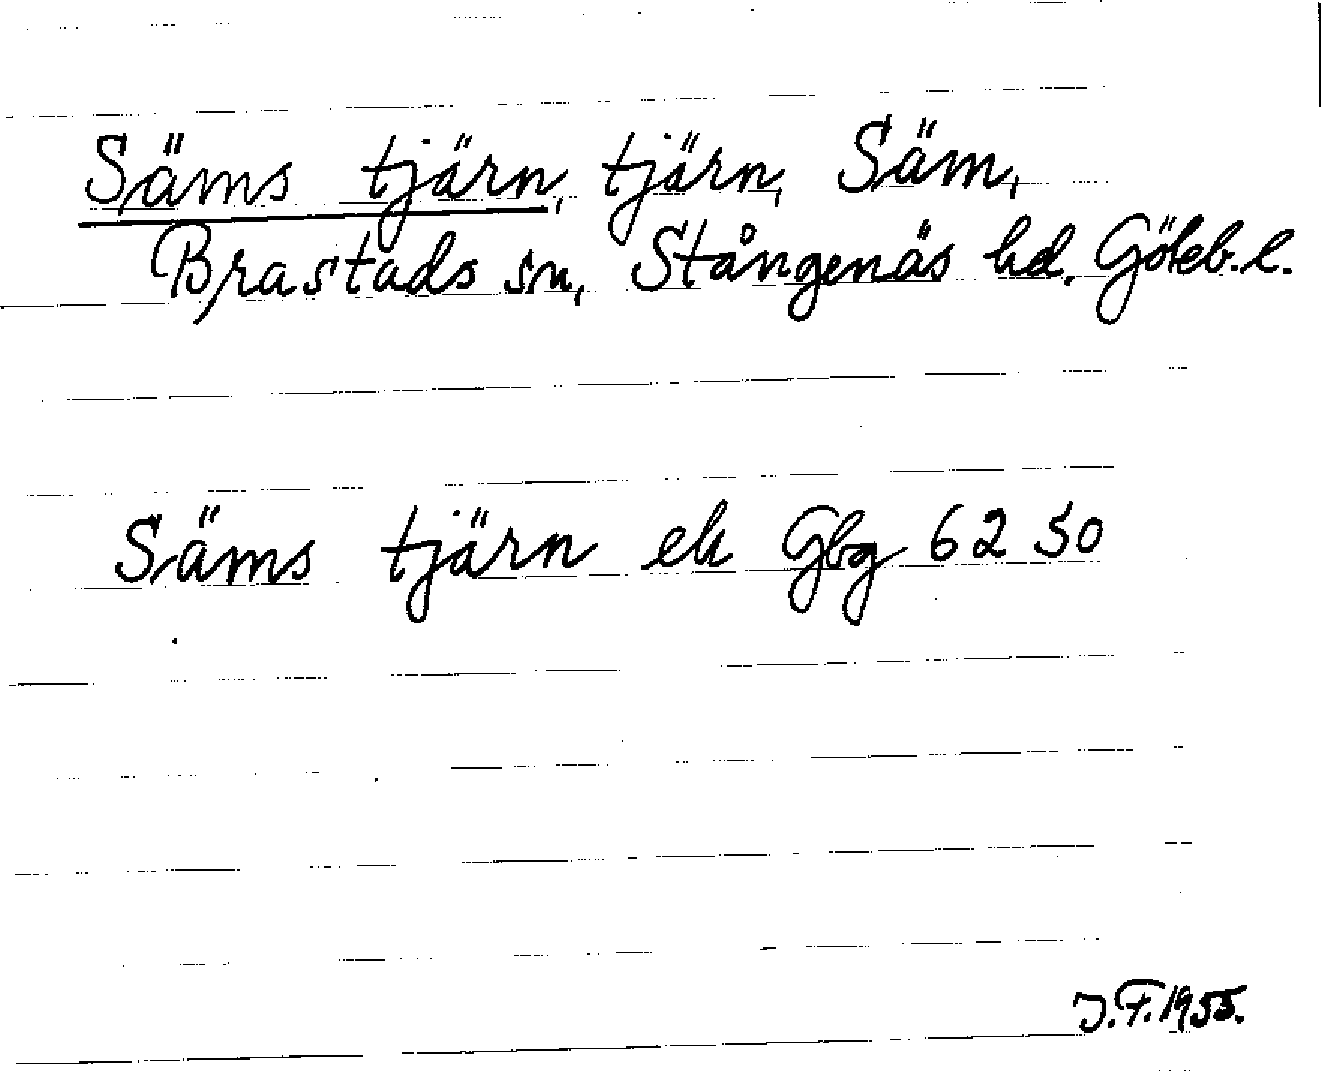 Säms tjärn, tjärn, Säm,
Brastads sn, Stångenäs hd. Göteb. l.
Säms tjärn ek Gbg 62 50
J.F. 1955.